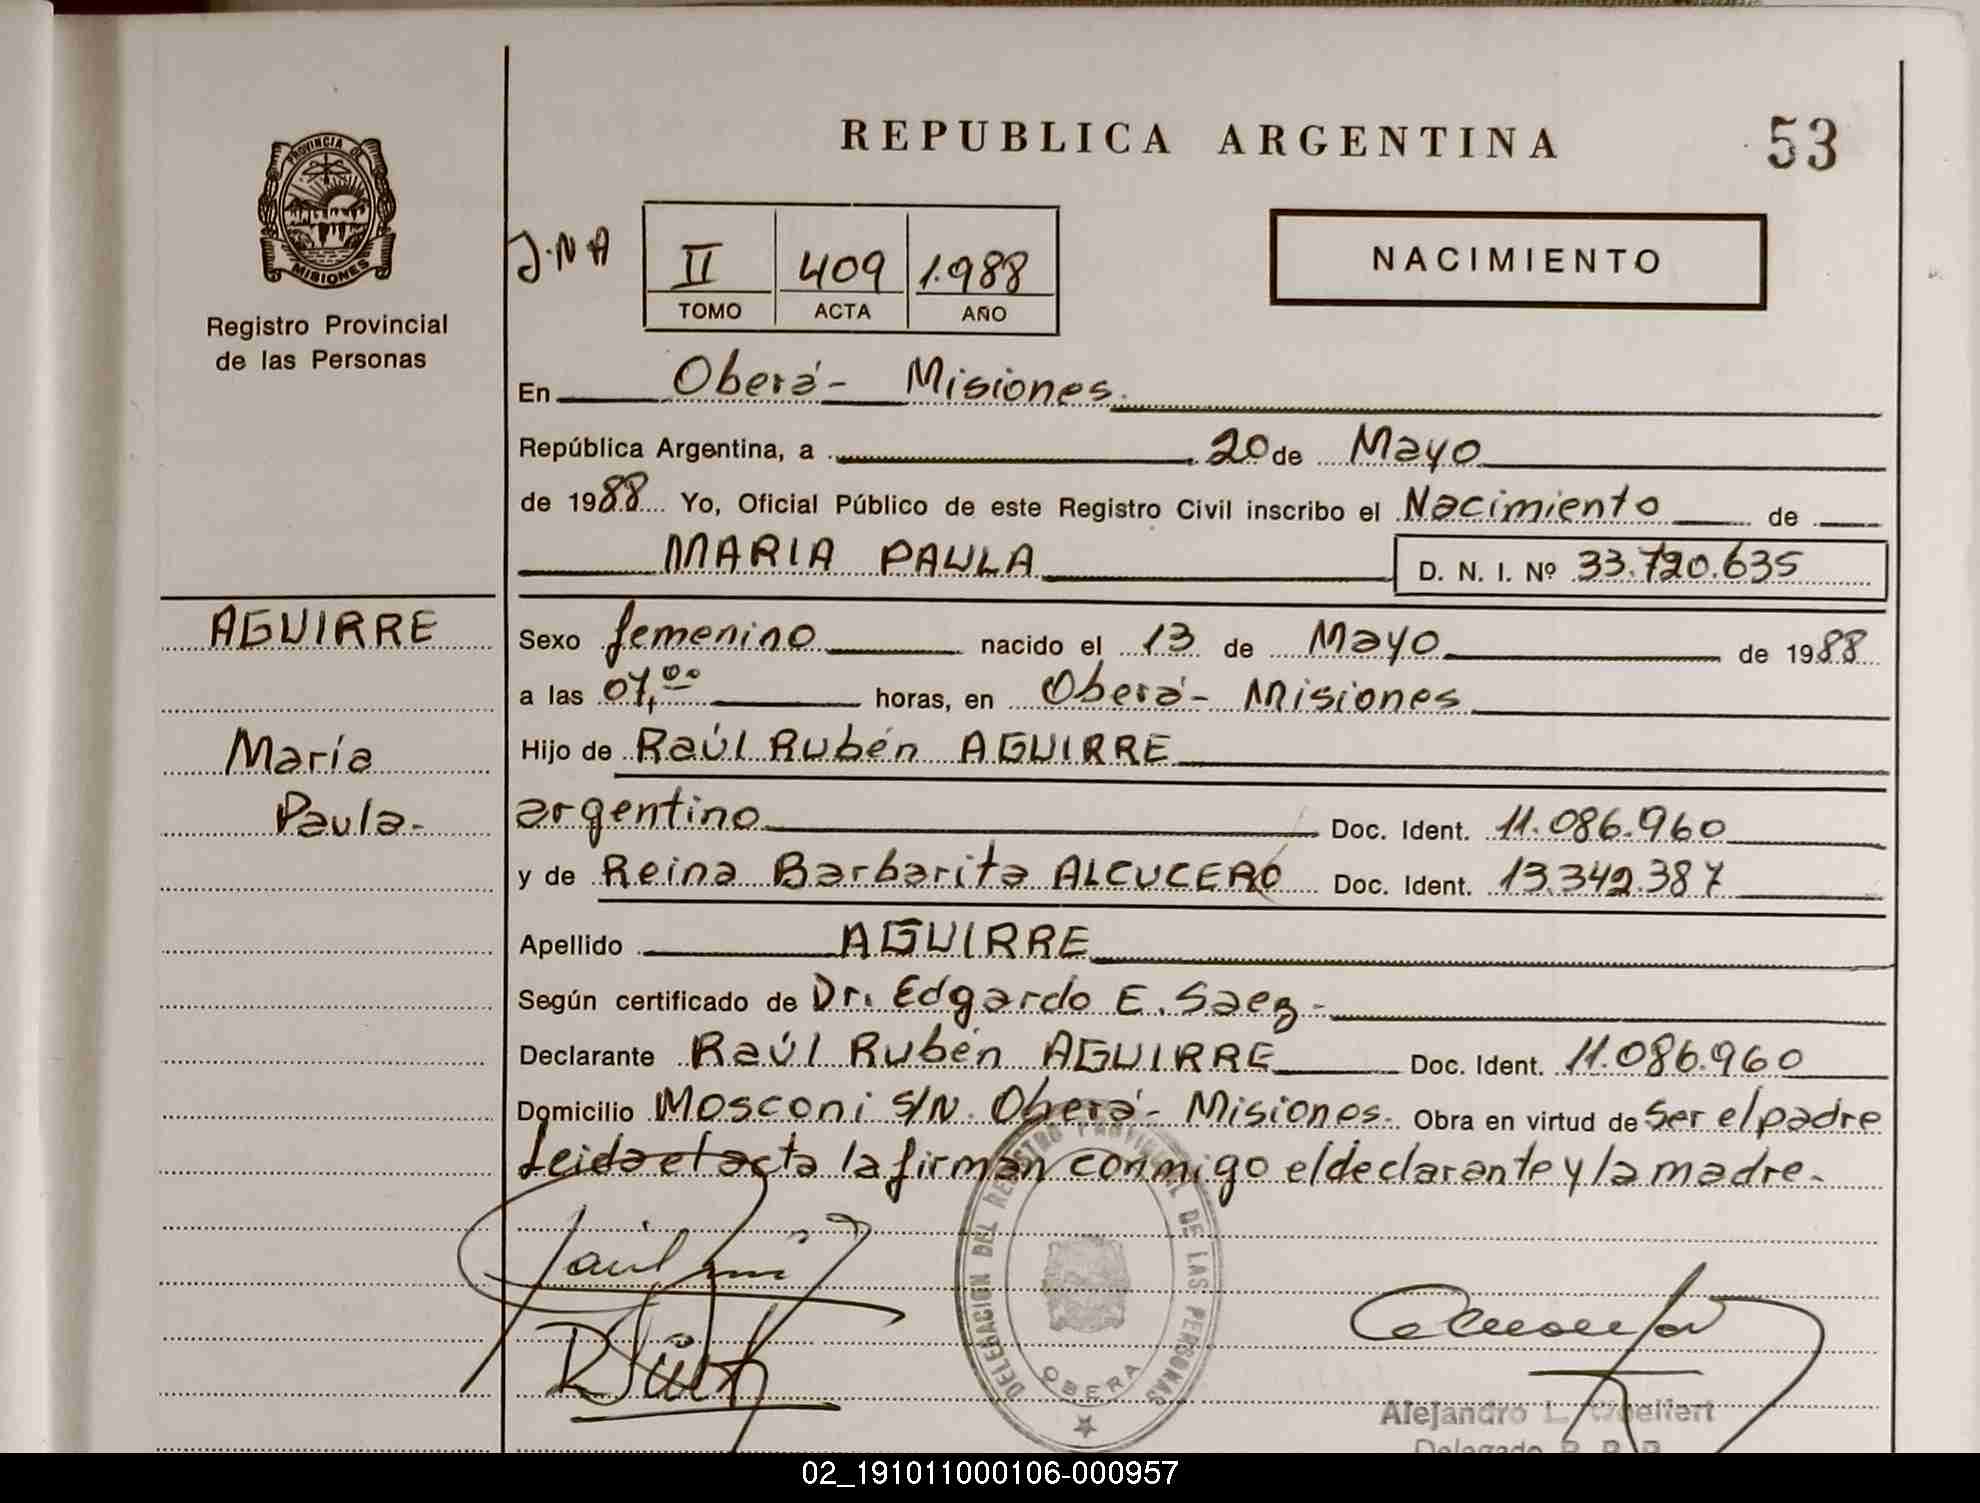 REPUBLICA ARGENTINA
53
PROVINCIA DE
MISIONES
Registro Provincial
de las Personas
J.N.A
II 409 1.988
TOMO ACTA AÑO
NACIMIENTO
En Oberá - Misiones.
República Argentina, a 20 de Mayo
de 1988 Yo, Oficial Público de este Registro Civil inscribo el Nacimiento de
MARIA PAULA D. N. I. Nº 33.720.635
AGUIRRE
María
Paula.-
Sexo femenino nacido el 13 de Mayo de 1988
a las 07,00 horas, en Oberá - Misiones
Hijo de Raúl Rubén AGUIRRE
argentino Doc. Ident. 11.086.960
y de Reina Barbarita ALCUCERO Doc. Ident. 13.342.387
Apellido AGUIRRE
Según certificado de Dr. Edgardo E. Saez.-
Declarante Raúl Rubén AGUIRRE Doc. Ident. 11.086.960
Domicilio Mosconi S/N. Oberá - Misiones. Obra en virtud de Ser el padre
Leida el acta la firman conmigo el declarante y la madre.-
DELEGACION DEL REGISTRO PROVINCIAL DE LAS PERSONAS
OBERA
Alejandro L.
Delegado R. P. P.
02_191011000106-000957